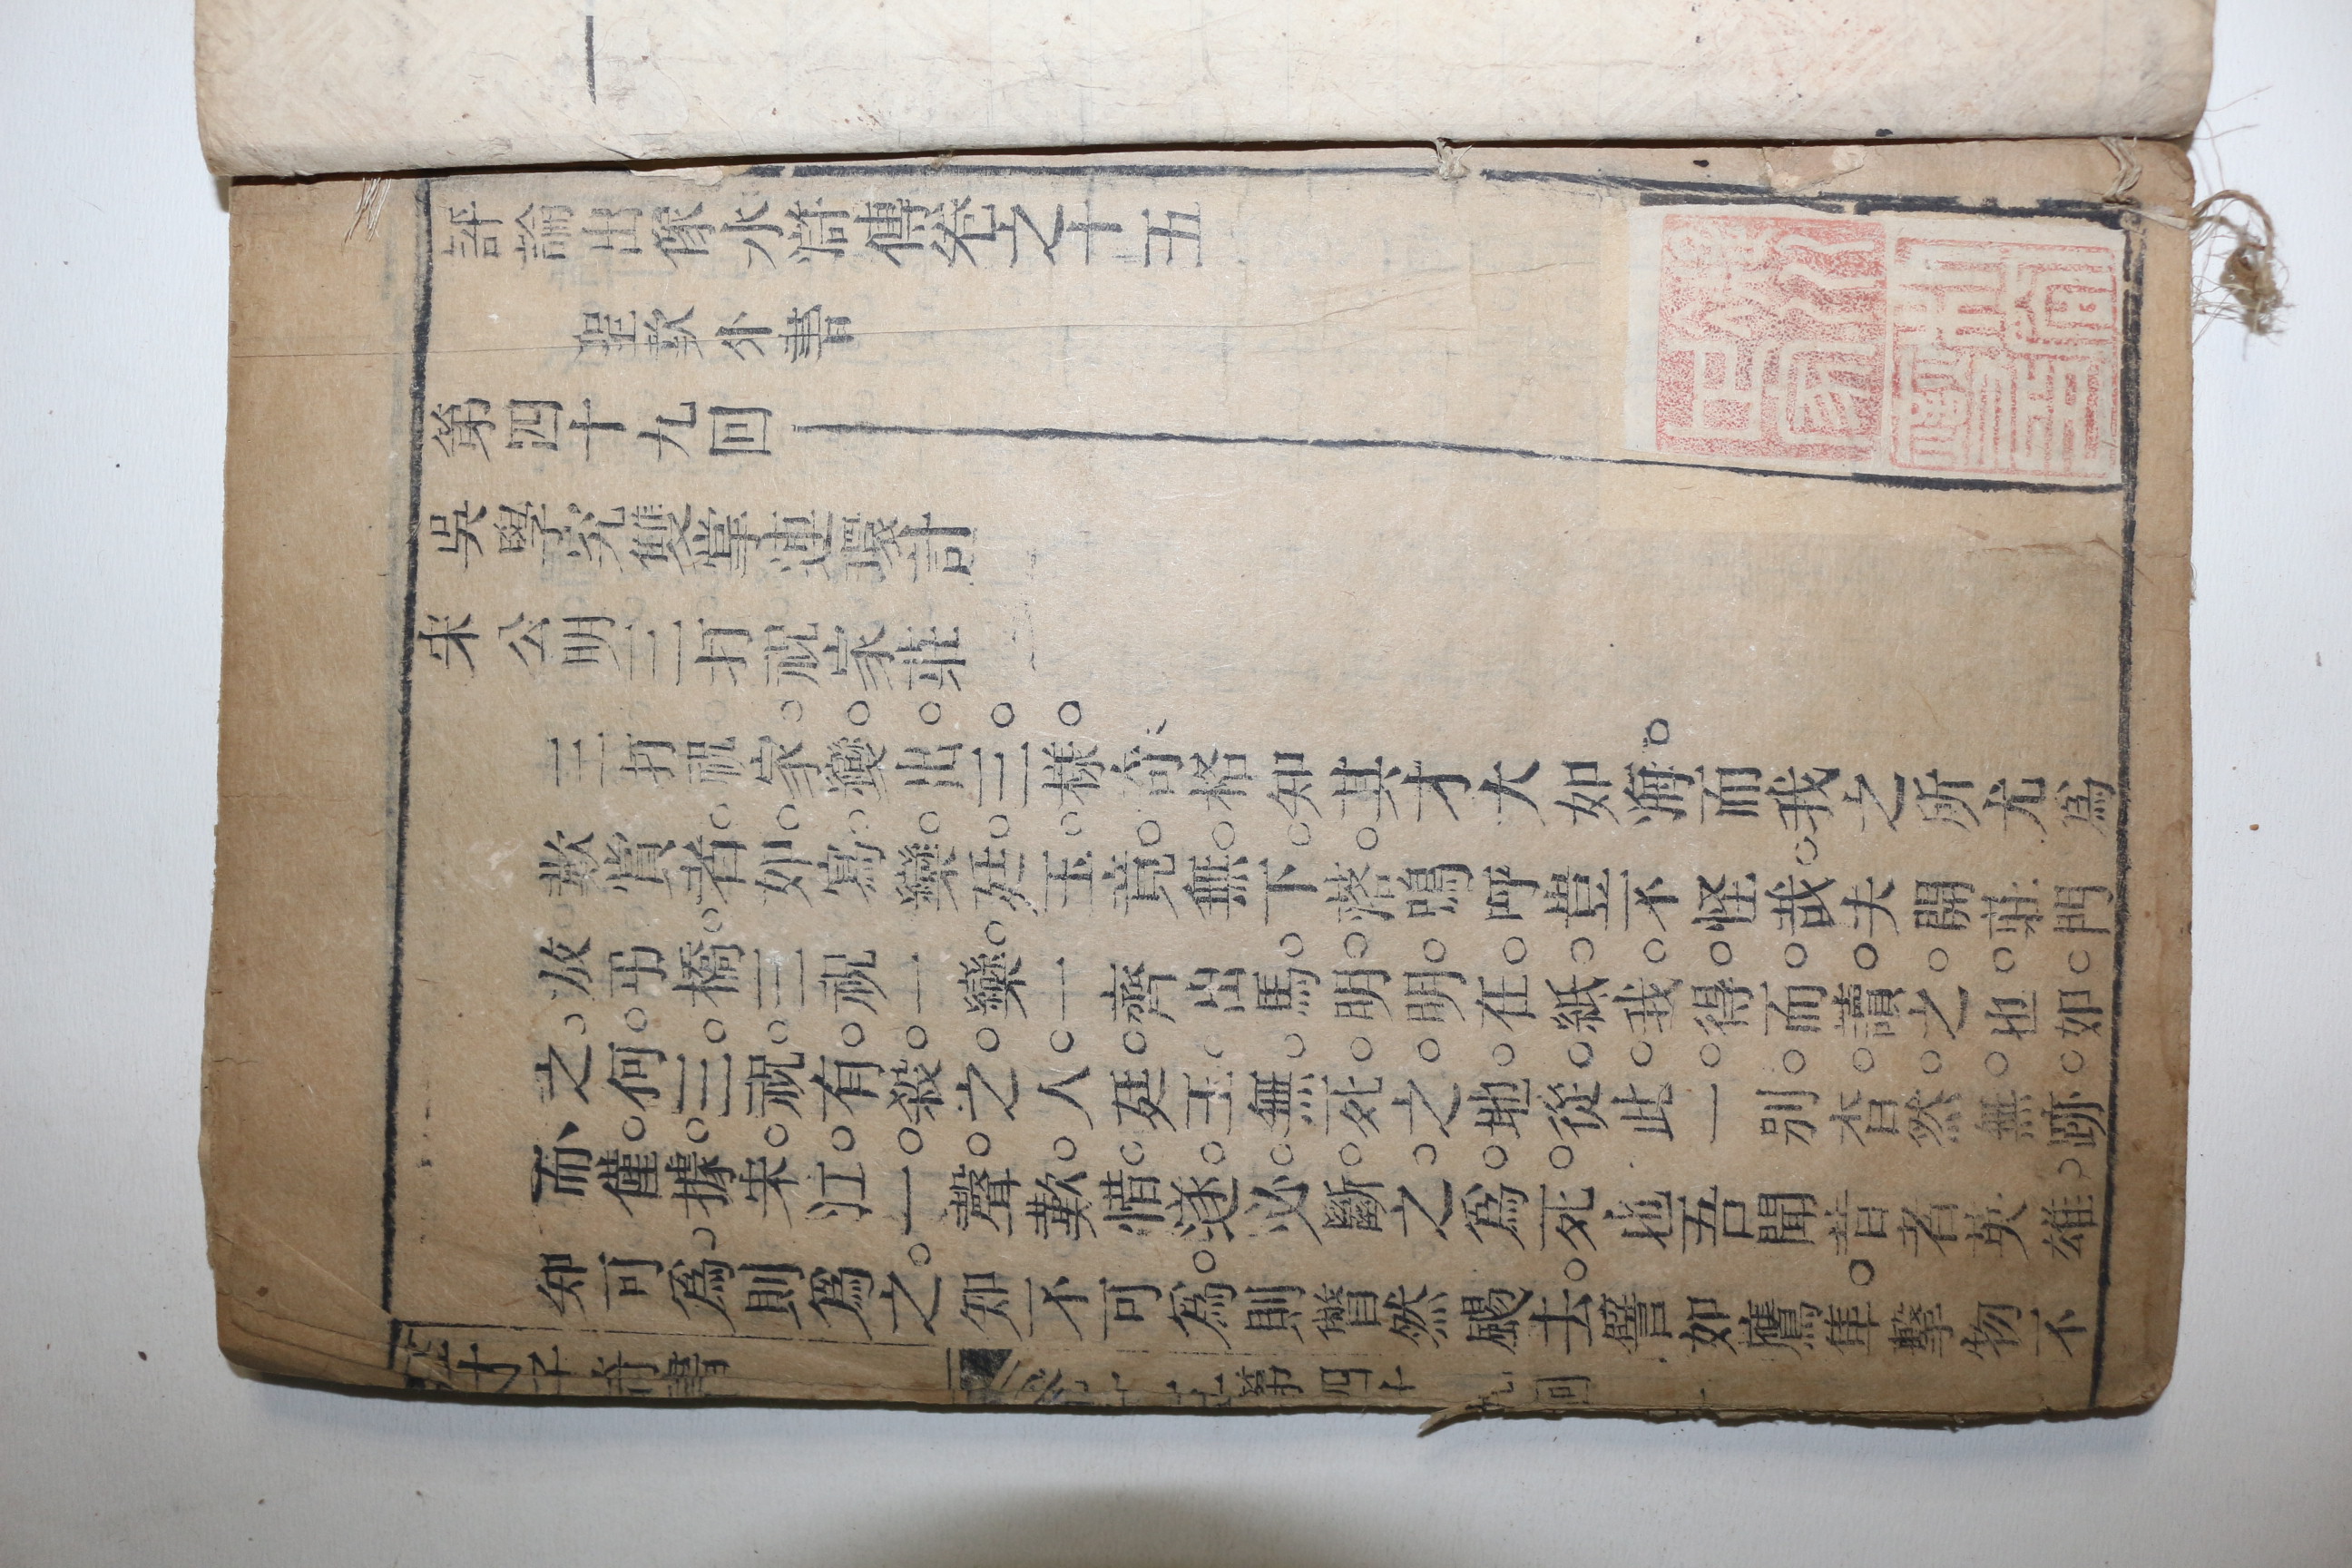 評論出像水滸傳卷之十五
聖歎外書
第四十九回
吳學究雙掌連環計
宋公明三打祝家莊
三打祝家變出三樣奇格知其才大如海而我之所尤爲
歎賞者如寫欒廷玉竟無下落嗚呼豈不怪哉夫開莊門
放弔橋三祝一欒一齊出馬明明在紙我得而讀之也如
之何三祝有殺之人廷玉無死之地從此一別杳然無跡
而僅據宋江一聲歎惜遂必斷之爲死也吾聞昔者英雄
知可爲則爲之知不可爲則瞥然颺去譬如鷹隼擊物不
第五才子奇書
卷十五第四十九回